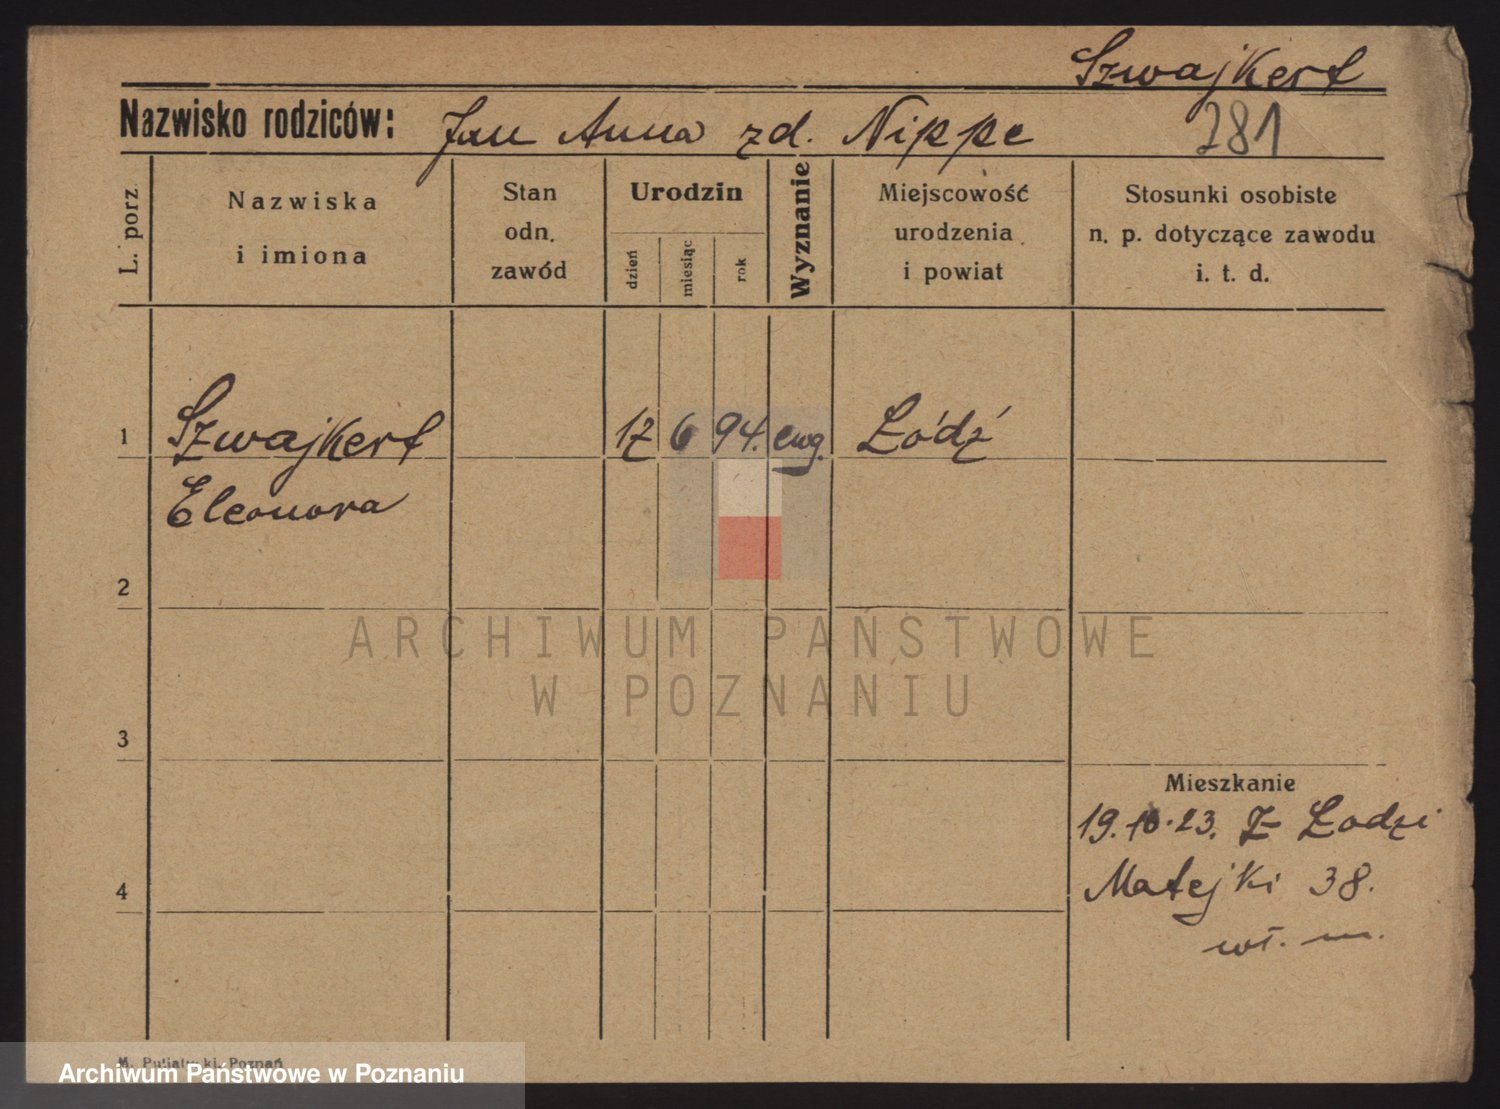 Szwajkert
Nazwisko rodziców: Jan Anna zd. Nippe 281
L. porz.
Nazwiska
i imiona
Stan
odn.
zawód
Urodzin
dzień
miesiąc
rok
Wyznanie
Miejscowość
urodzenia
i powiat
Stosunki osobiste
n. p. dotyczące zawodu
i. t. d.
1 Szwajkert 17 6 94. ewg. Łódź
Eleonora
2
ARCHIWUM PAŃSTWOWE
W POZNANIU
3
Mieszkanie
19.10.23. Z Łodzi
4 Matejki 38.
wł. m.
Poznań
Archiwum Państwowe w Poznaniu